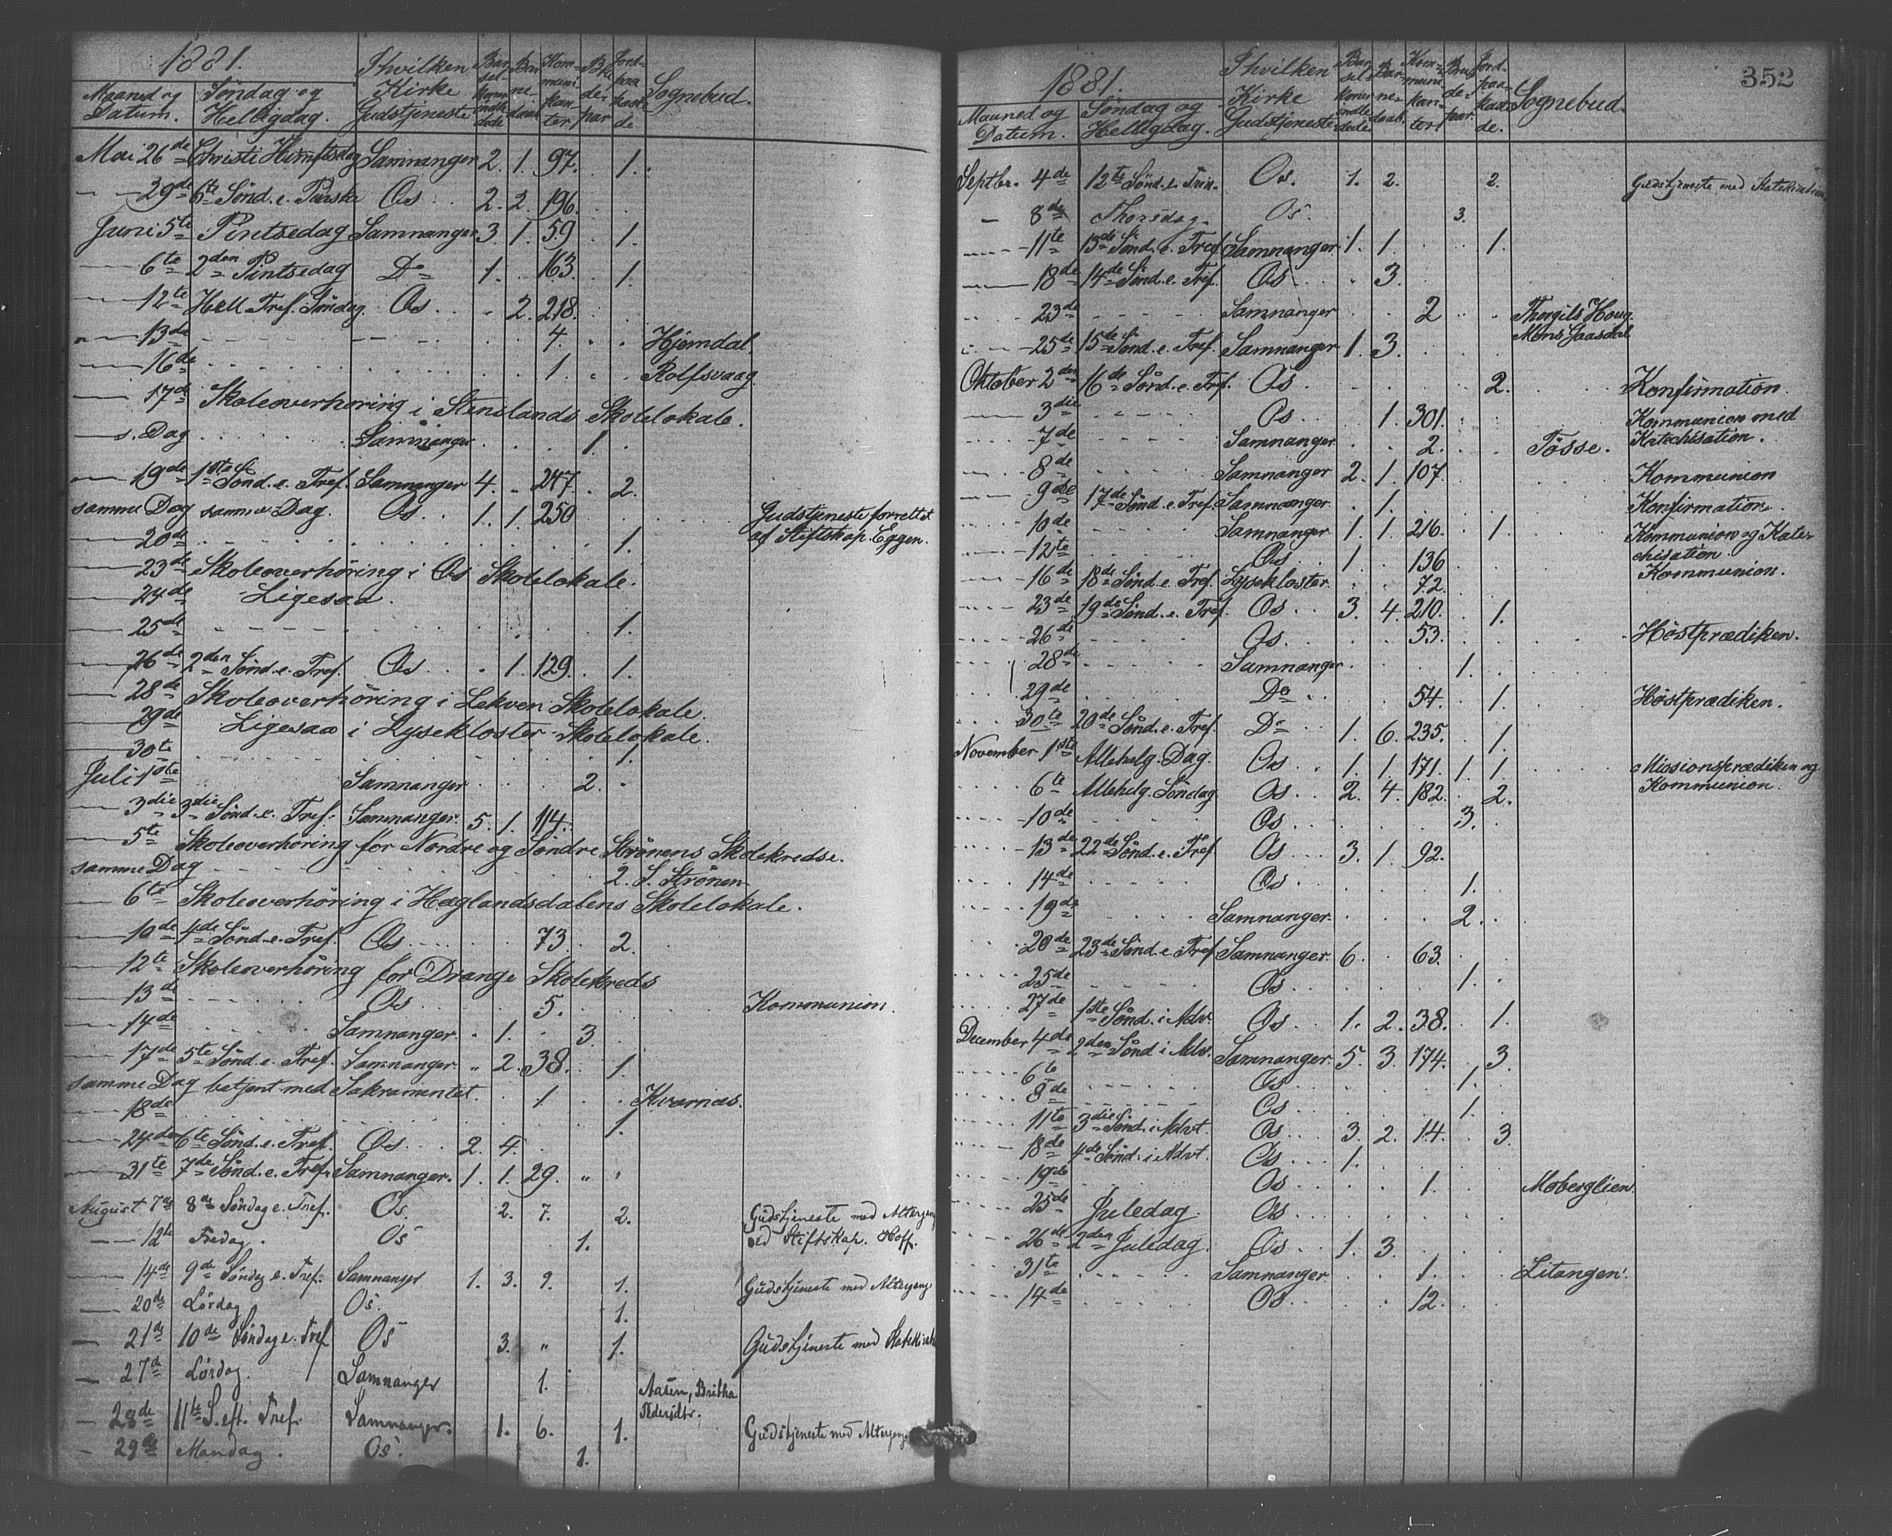 1881.
Maaned og Datum. Søndag og Helligdag. I hvilken Kirke Gudstjeneste Barselkoner indledede Barnedaab Kommunikanter Brudepar Jordpaakastede Sognebud.
Mai 26de Christi Himfsdag Samnanger 2. 1. 97. 1.
29de 6te Sönd. e. Paaske Os 2. 2. 196.
Juni 5te Pintsedag Samnanger 3. 1. 59. 1.
6te 2den Pintsedag Do 1. 163. 1.
12te Hell. Tref. Søndag. Os 2. 218.
13de 4. Hjemdal
16de 1. Rolfsvaag
17de Skoleoverhøring i Stenslands Skolelokale.
s. Dag Samnanger 1.
19de 1ste Sönd. e. Tref. Samnanger 4. 247. 2.
samme Dag samme Dag. Os 1. 1. 250 Gudstjeneste forrettet
20de 1. af Stiftskap. Eggen.
23de Skoleoverhøring i Os Skolelokale.
24de Ligesaa
25de 1.
26de 2den Sönd. e. Tref. Os 1. 129. 1.
28de Skoleoverhøring i Lekven Skolelokale.
29de Ligesaa i Lysekloster Skolelokale.
30te 1.
Juli 1ste Samnanger 2.
3die 3die Sönd. e. Tref. Samnanger. 5. 1. 114.
5te Skoleoverhøring for Nordre og Söndre Strönens Skolekredse.
samme Dag 2. S. Strönen
6te Skoleoverhøring i Hæglandsdalens Skolelokale.
10de 4de Sönd. e. Tref. Os 73. 2.
12te Skoleoverhøring for Drange Skolekreds
13de Os 5. Kommunion
14de Samnanger 1. 3.
17de 5te Sönd. e. Tref. Samnanger 2. 38. 1.
samme Dag betjent med Sakramentet 1 Kvernæs.
18de 1.
24de 6te Sönd. e. Tref. Os 2. 4.
31te 7de Sönd. e. Tref. Samnanger. 1. 1. 29. " "
August 7de 8de Søndag e. Tref. Os. 2. 7. 2. Gudstjeneste med Altergang
12te Fredag. Os 1. ved Stiftskap. Hoff.
14de 9de Søndag e. Tref. Samnanger 1. 3. 9. 1. Gudstjeneste med Altergang
20de Lørdag Os. 1.
21de 10de Søndag e. Tref. Os 3. " 1. Gudstjeneste med
27de Lørdag. Samnanger 1. Aasen, Britha
28de 11te S. eft. Tref. Samnanger. 1. 6. 1. Gudstjeneste med Altergang
29de Mandag. Os. 1.
352
1881.
Maaned og Datum. Søndag og Helligdag. I hvilken Kirke Gudstjeneste Barselkoner indledede Barnedaab. Kommunikanter Brudepar. Jordpaakastede. Sognebud.
Septbr. 4de 12te Sönd. e. Trin. Os. 1. 2. 2. Gudstjeneste med
8de Thorsdag. Os. 3.
11te 13de Sönd. e. Tref. Samnanger 1. 1. 1.
18de 14de Sönd. e. Tref. Os 3.
23de Samnanger 2 Thorgils Houg
25de 15de S. e. Tref. Samnanger 1. 3. Mons Gaasdal
Oktober 2den 16de Sönd. e. Tref. Os 2. Konfirmation.
3die Os 1. 301. Kommunion med
7de Samnanger 2. Tösse. Katechisation.
8de Samnanger 2. 1. 107. Kommunion
9de 17de Sönd. e. Tref. Samnanger. 1. Konfirmation.
10de Samnanger 1. 1. 216. 1. Kommunion og Kate-
12te Os 1. 136 chisation
16de 18de Sönd. e. Tref. Lysekloster 72. Kommunion.
23de 19de Sönd. e. Tref. Os 3. 4. 210. 1.
26de Os. 53. Høstprædiken.
28de Samnanger 1.
29de Do 54. 1. Høstprædiken.
30te 20de Sönd. e. Tref. Do 1. 6. 235. 1.
November 1ste Allehelg. Dag. Os 1. 1. 171. 1. 1. Missionsprædiken og
6te Allehelg. Søndag Os 2. 4. 182. 2. Kommunion.
10de Os 3.
13de 22de Sönd. e. Tref. Os 3. 1. 92.
14de Os 1.
19de Samnanger 2.
20de 23de Sönd. e. Tref. Samnanger 6. 63.
25de Os 1.
27de 1ste Sönd. i Adv. Os 1. 2. 38. 1.
December 4de 2den Sönd i Adv. Samnanger. 5. 3. 174. 3.
6te Os 1.
8de Os 1.
11te 3die Sönd. i Advt Os 3. 2. 14. 3.
18de 4de Sönd. i Advt. Os 1.
19de Os 1. Moberglien
25de Juledag. Os
26de 2den Juledag. Os 1. 3.
31te Samnanger 1. Litangen.
14de Os 12.